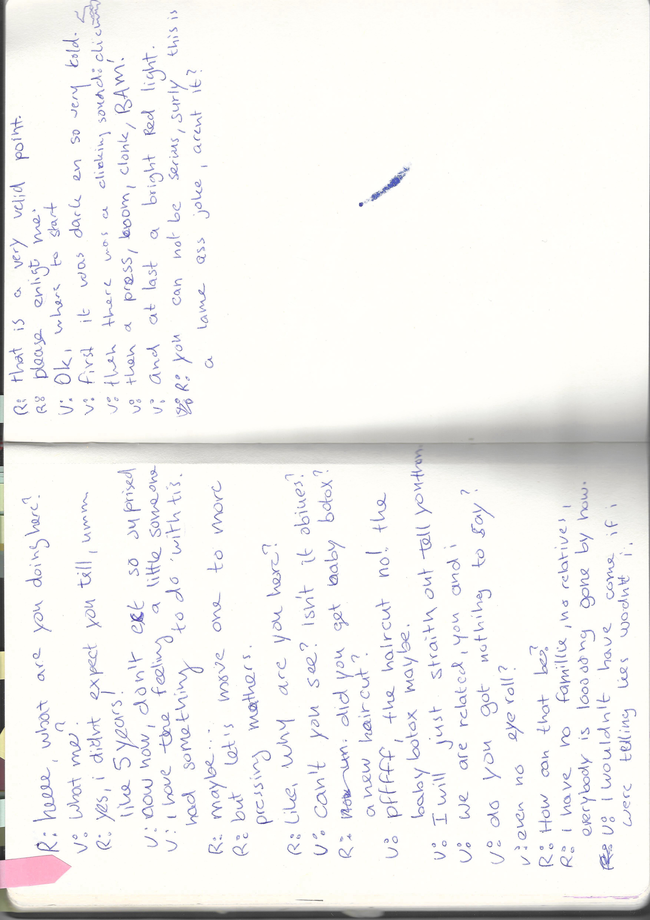 R: helle, what are you doing here?
V: what me?
R: yes, i didnt expect you till, umm
like 5 years!
V: now now, don't act so suprised
V: i have the feeling a little someone
had something to do with tis.
R: maybe...
R: but let's move one to more
pressing mathers.
R: Like, why are you here?
V: can't you see? Isn't it obiues?
R: um. did you get baby botox?
a new haircut?
V: pfffff, the haircut no! the
baby botox maybe.
V: I will just straith out tell you then
V: we are related, you and i
V: do you got nothing to say?
V: even no eye roll?
R: How can that be?
R: I have no famillie, no relatives,
everybody is looooong gone by now.
V: I wouldn't have come if i
were telling lies wodnt i.
R: that is a very velid point.
R: please enligt me.
V: Ok, where to start
V: first it was dark en so very kold.
V: then there was a clicking sound:
V: then a press, boom, clonk, BAM!
V: and at last a bright Red light.
R: you can not be serius, surly this is
a lame ass joke, arent it?